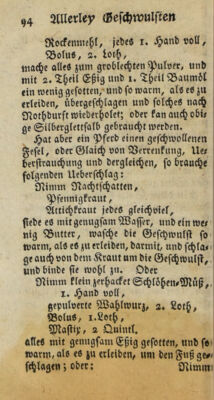 94 Allerley Geschwulsten
Rockenmehl, jedes 1. Hand voll,
Bolus, 2. Loth,
mache alles zum groblechten Pulver, und
mit 2. Theil Eßig und 1. Theil Baumöl
ein wenig gesotten, und so warm, als es zu
erleiden, übergeschlagen und solches nach
Nothdurft wiederholet; oder kan auch obi-
ge Silberglettsalb gebraucht werden.
Hat aber ein Pferd einen geschwollenen
Fesel, oder Gleich von Verrenkung, Ue-
berstrauchung und dergleichen, so brauche
folgenden Ueberschlag:
Nimm Nachtschatten,
Pfennigkraut,
Attichkraut jedes gleichviel,
siede es mit genugsam Wasser, und ein we-
nig Butter, wasche die Geschwulst so
warm, als es zu erleiden, darmit, und schla-
ge auch von dem Kraut um die Geschwulst,
und binde sie wohl zu. Oder
Nimm klein zerhacket Schlöhen-Mäß,
1. Hand voll,
gepulverte Wahlwurz, 2. Loth,
Bolus, 1. Loth,
Mastix, 2 Quintl.
alles mit genugsam Eßig gesotten, und so
warm, als es zu erleiden, um den Fuß ge-
schlagen; oder: Nimm